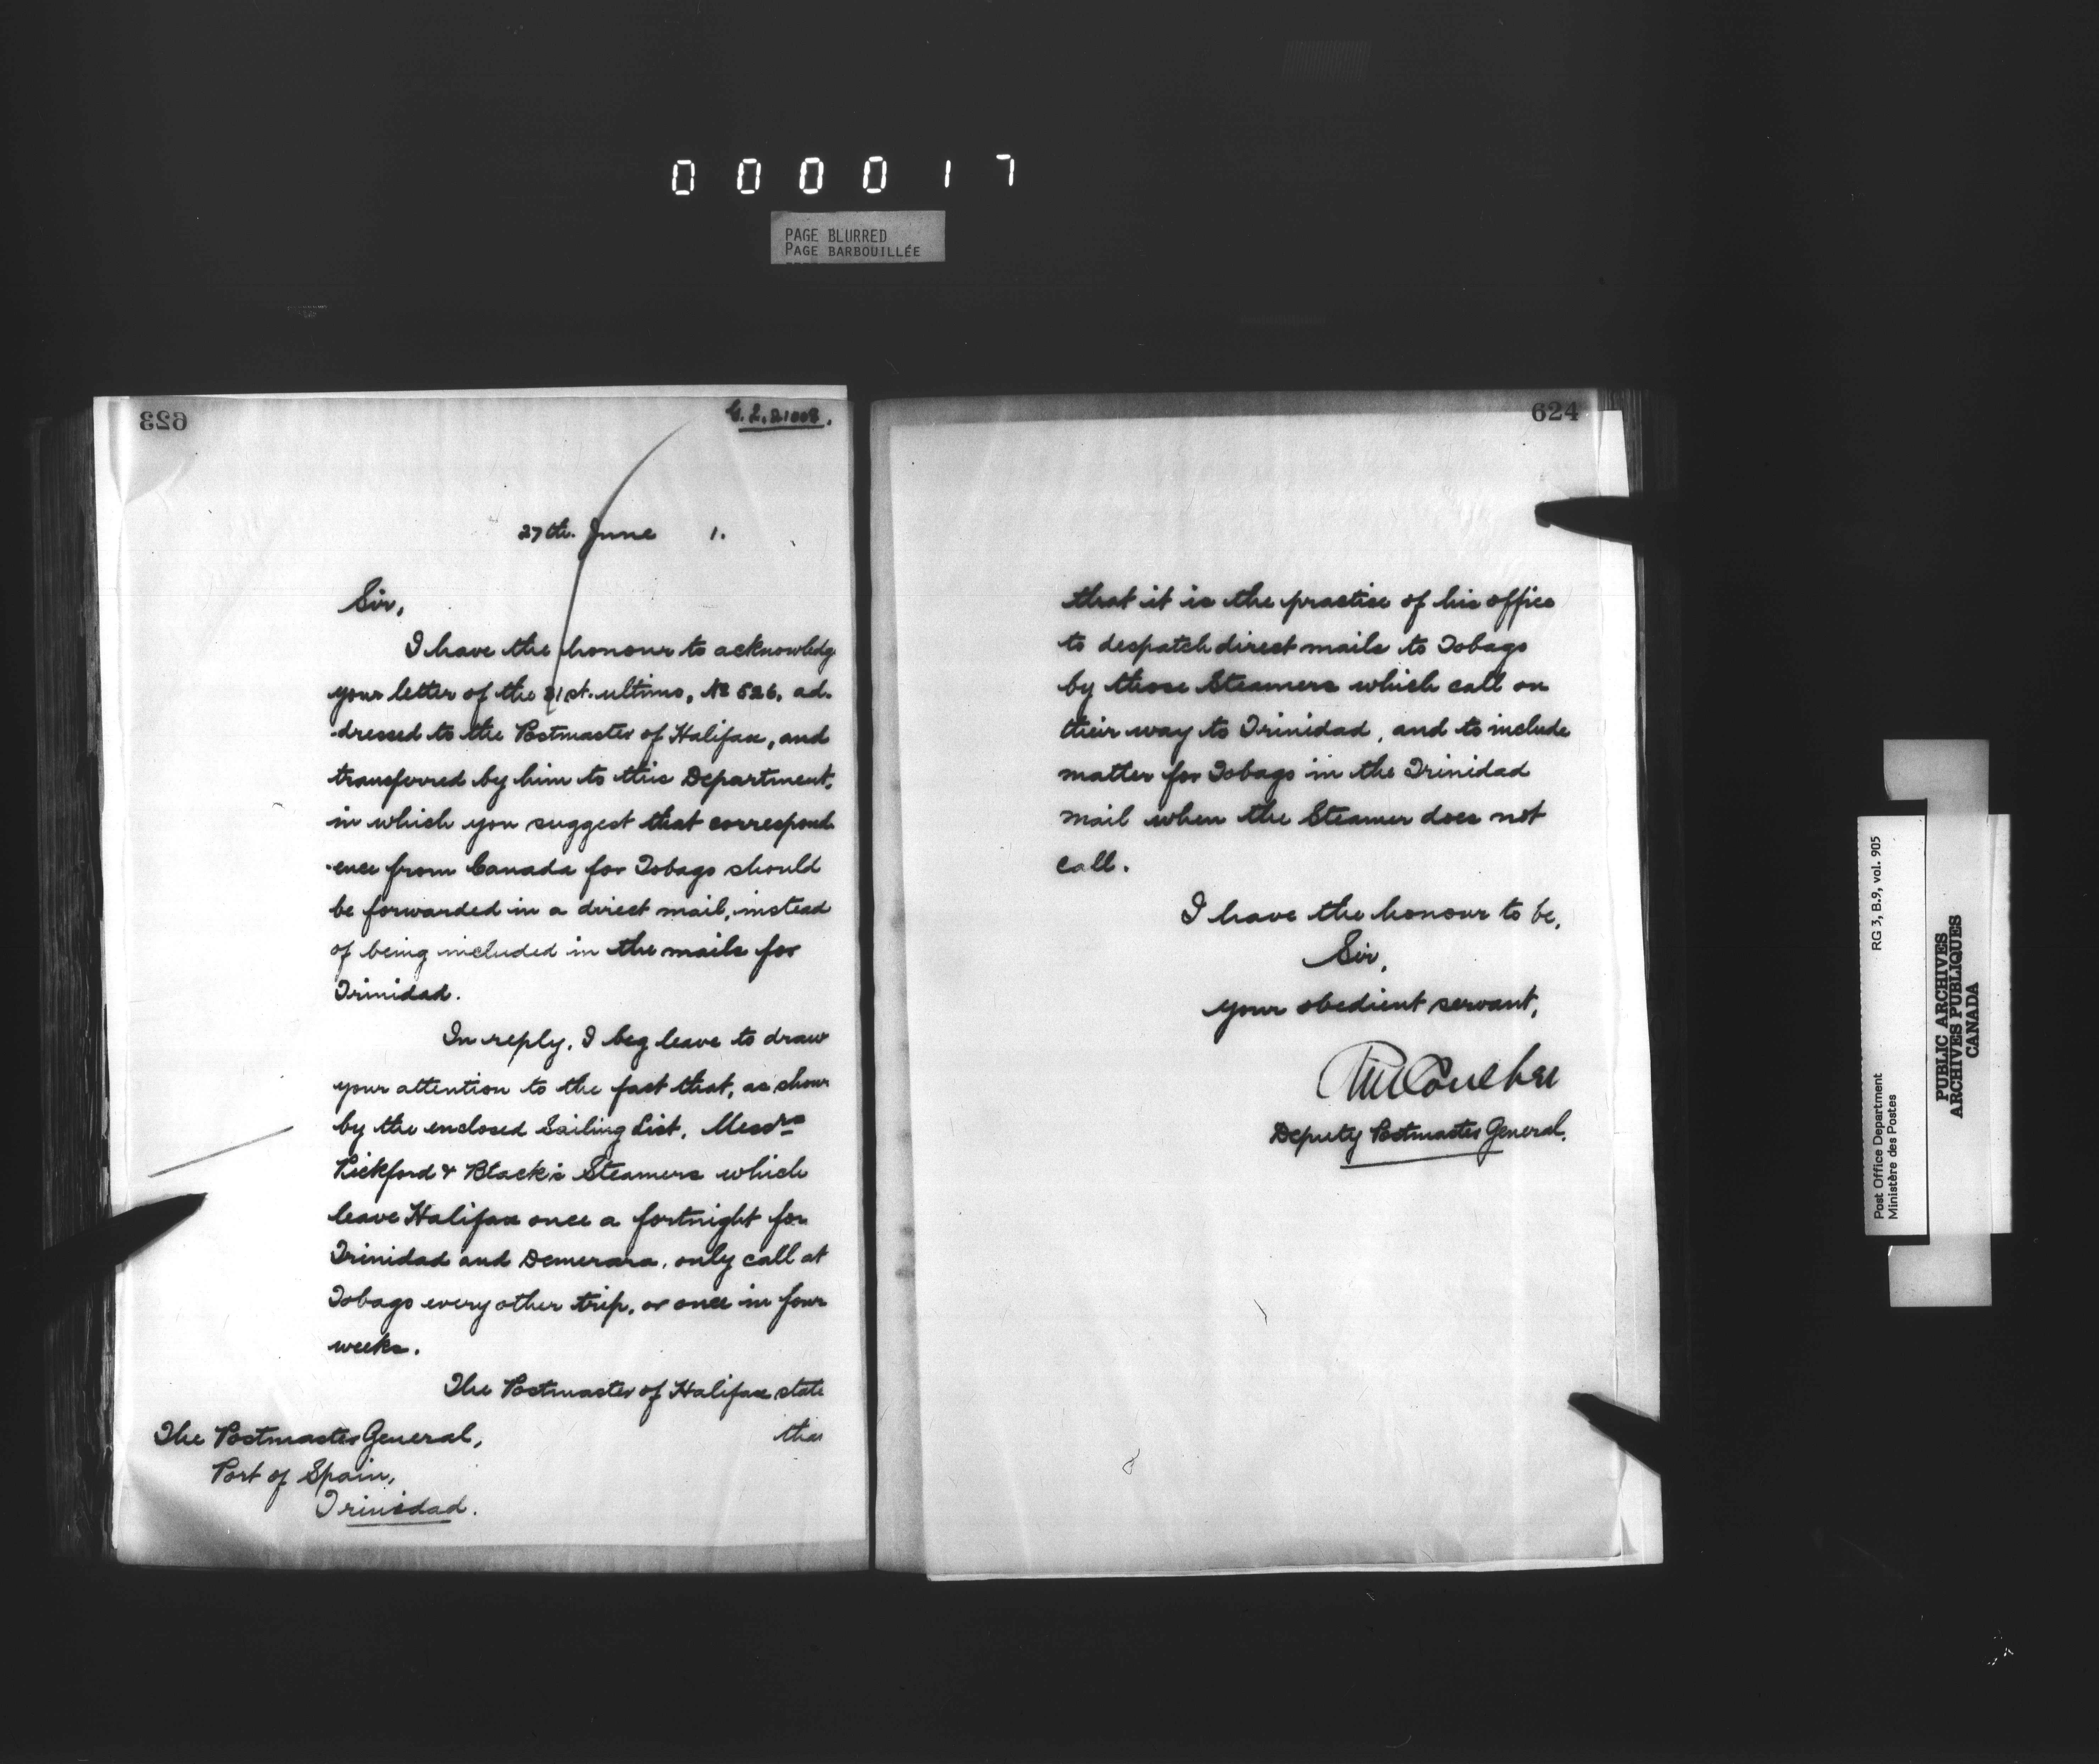 000017
PAGE BLURRED
PAGE BARBOUILLÉE
623
27th. June 1.
Sir,
I have the honour to acknowledg
your letter of the 31st. ultimo, No 526, ad-
dressed to the Postmaster of Halifax, and
transferred by him to this Department,
in which you suggest that correspond
ence from Canada for Tobago should
be forwarded in a direct mail, instead
of being included in the mails for
Trinidad.
In reply, I beg leave to draw
your attention to the fact that, as shown
by the enclosed Sailing List, Messrs
Pickford & Black's Steamers which
leave Halifax once a fortnight for
Trinidad and Demerara, only call at
Tobago every other trip, or once in four
weeks.
The Postmaster of Halifax state
that
The Postmaster General,
Port of Spain,
Trinidad.
624
that it is the practice of his office
to despatch direct mails to Tobago
by those Steamers which call on
their way to Trinidad, and to include
matter for Tobago in the Trinidad
mail when the Steamer does not
call.
I have the honour to be,
Sir,
your obedient servant,
Deputy Postmaster General.
RG 3, B.9, vol. 905
Post Office Department
Ministère des Postes
PUBLIC ARCHIVES
ARCHIVES PUBLIQUES
CANADA